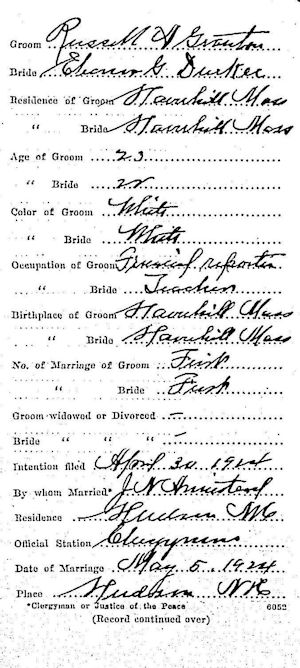 Groom Russell W Groton
Bride Eleanor G. Durkee
Residence of Groom Haverhill Mass
" Bride Haverhill Mass
Age of Groom 23
" Bride 22
Color of Groom White
" Bride White
Occupation of Groom Financial reporter
" Bride Teacher
Birthplace of Groom Haverhill Mass
" Bride Haverhill Mass
No. of Marriage of Groom First
" Bride First
Groom widowed or Divorced –
Bride " " " –
Intention filed April 30 1924
By whom Married* J N
Residence Hudson NH
Official Station Clergyman
Date of Marriage May 5, 1924
Place Hudson NH
*Clergyman or Justice of the Peace 6052
(Record continued over)